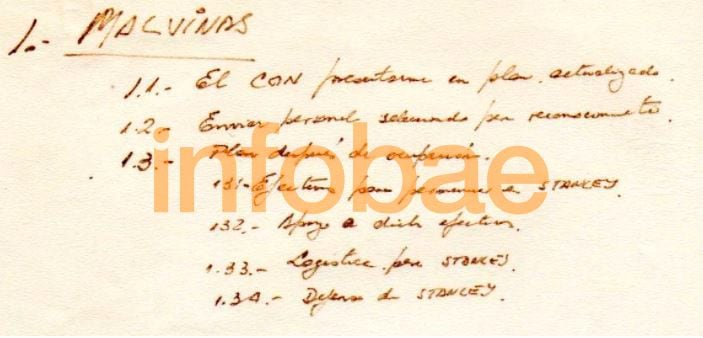 1.- MALVINAS
1.1.- El CON presentarme un plan actualizado.
1.2.- Enviar personal seleccionado para reconocimiento.
1.3.- Plan después de ocupación.
infobae
131.- Efectivos para permanecer en STANLEY.
132.- Apoyo a dichos efectivos.
1.33.- Logística para STANLEY.
1.34.- Defensa de STANLEY.